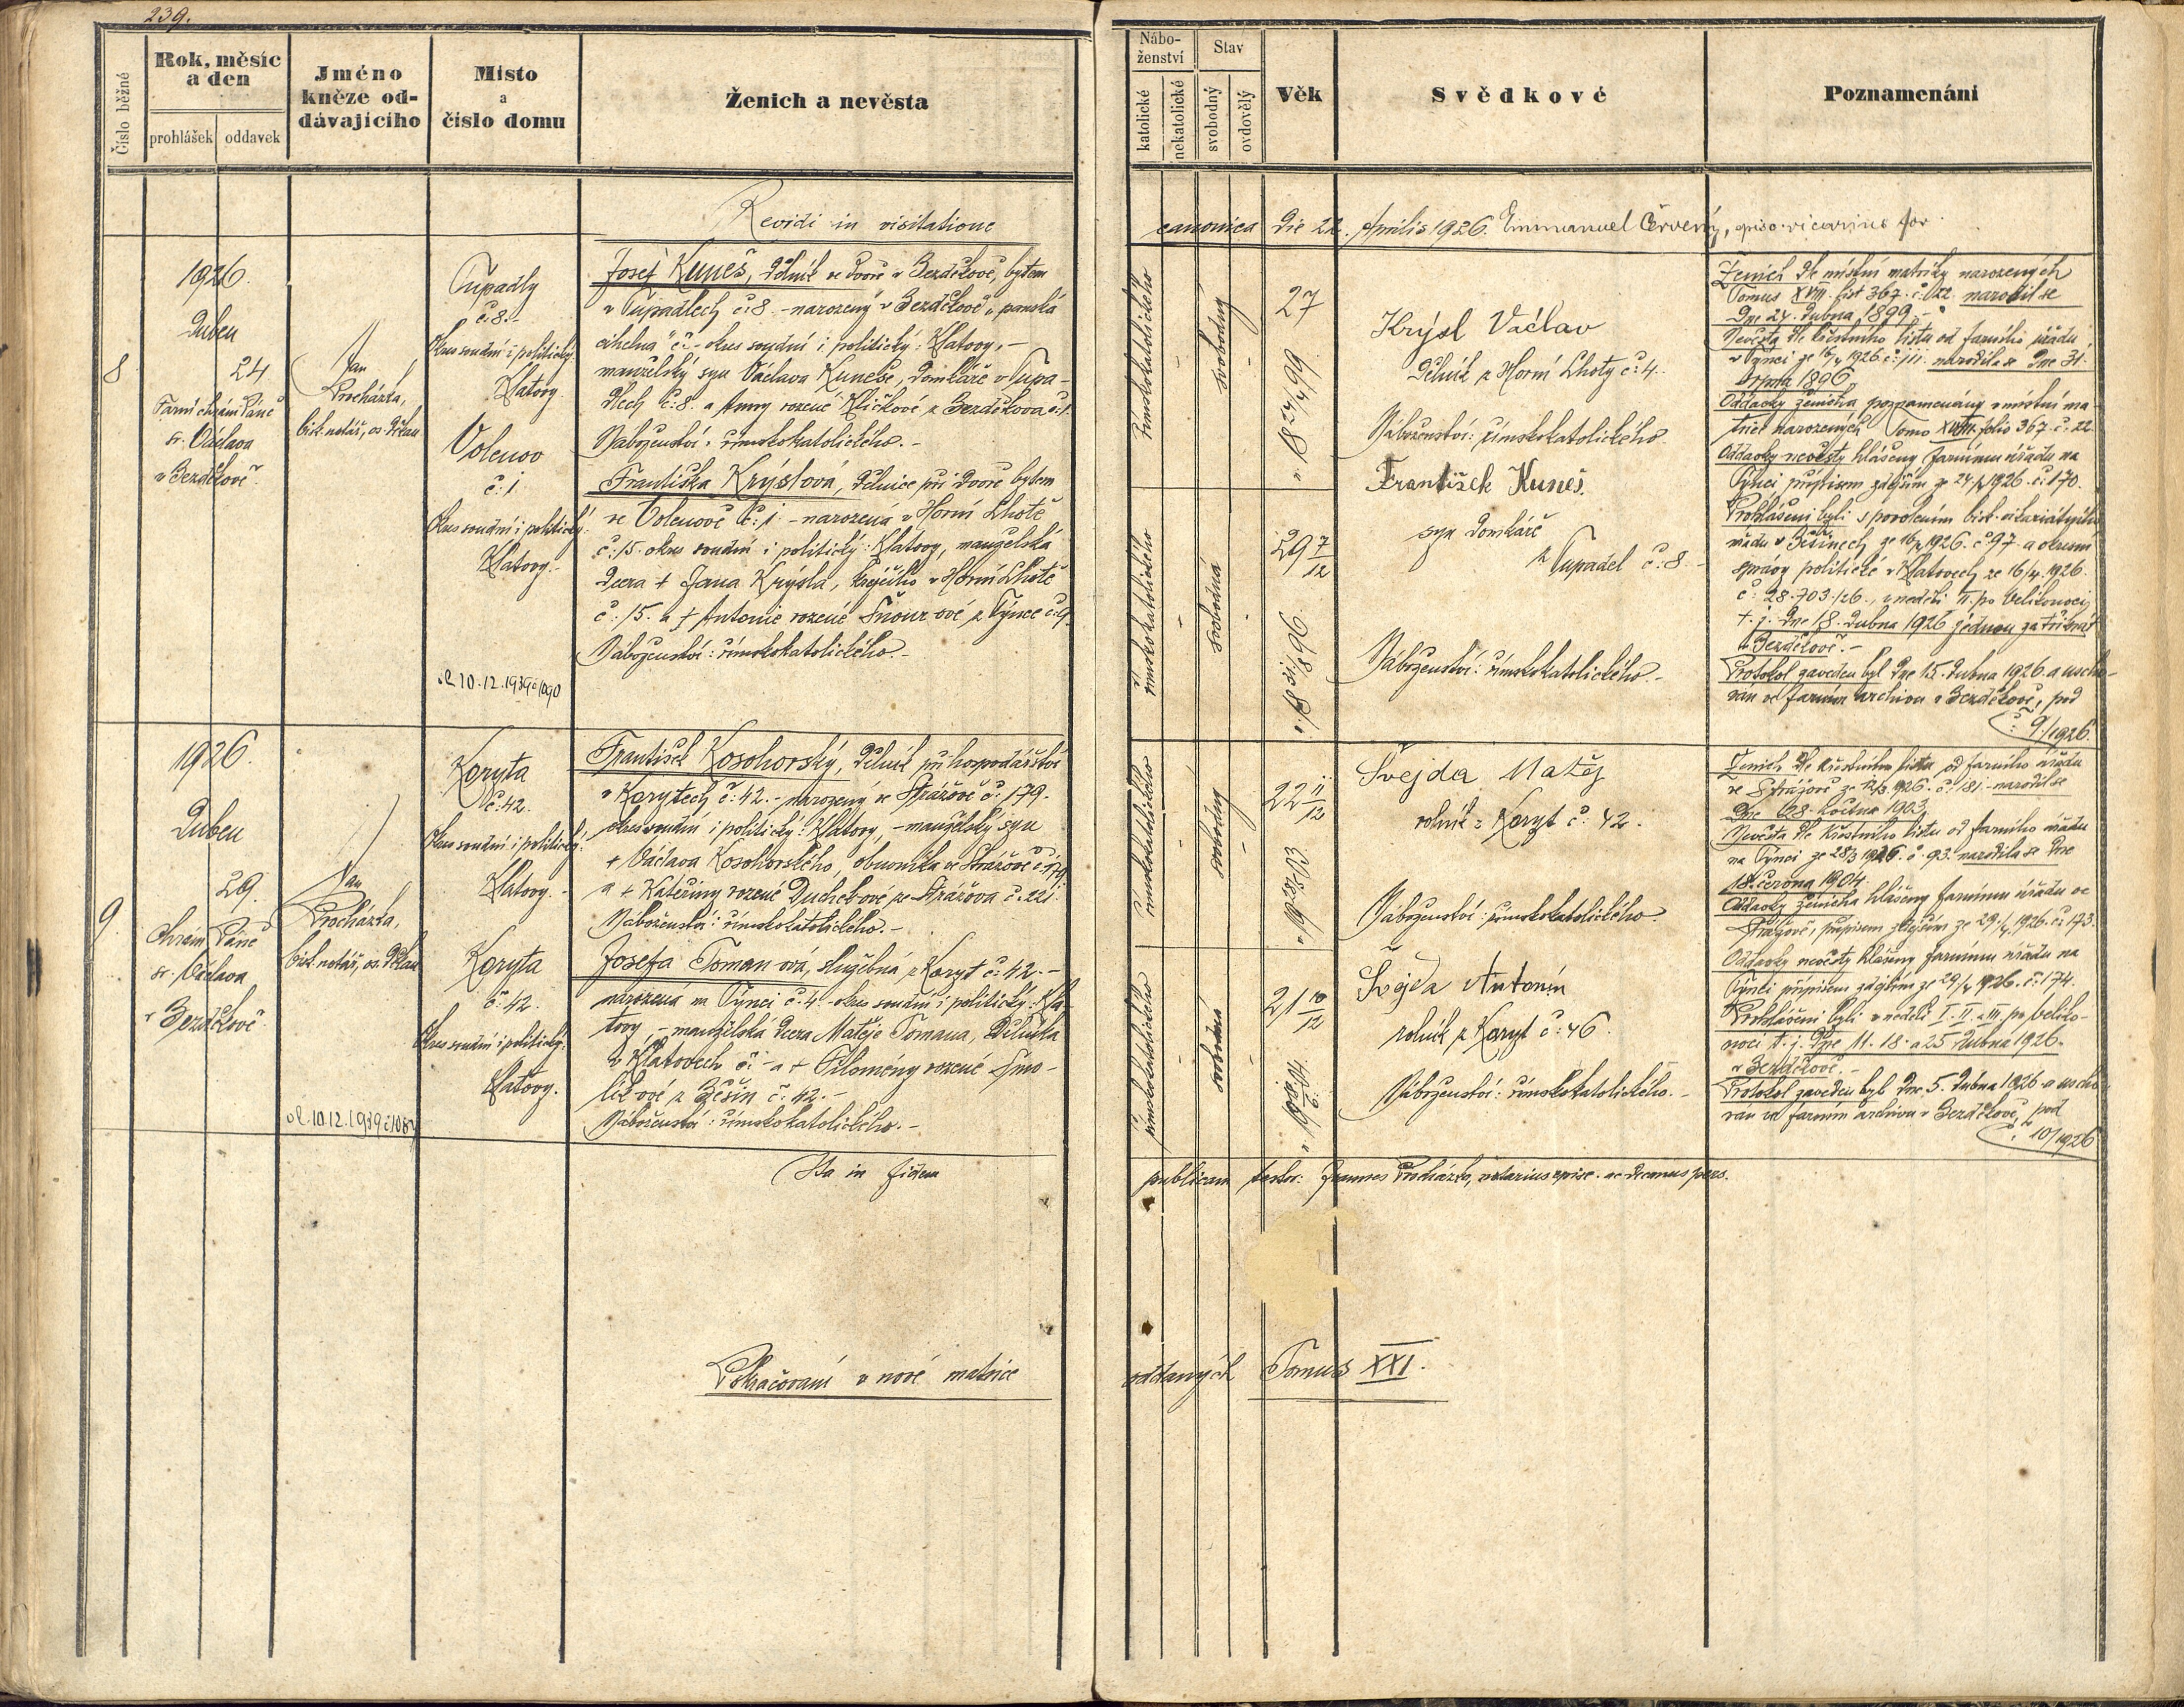 239.
Číslo běžné
Rok, měsíc
a den
prohlášek
oddavek
Jméno
kněze od-
dávajícího
Místo
a
číslo domu
Ženich a nevěsta
Nábo-
ženství
katolické
nekatolické
Stav
svobodný
ovdovělý
Věk
Svědkové
Poznamenání
Revidi in visitatione
canonica die 22. Aprilis 1926. Emmanuel Červený,
8
1926.
Duben
24
Farní chrám Páně
sv. Václava
v Bezděkově.
Jan
Procházka,
bisk. notář, os. děkan
Tupadly
č. 8.-
Okres soudní i politický:
Klatovy.
Volenov
č. 1
Okres soudní i politický:
Klatovy.-
d. 10.12.1939 č 1090
Josef Kuneš, dělník ve dvoře v Bezděkově, bytem
v Tupadlech č. 8. - narozený v Bezděkově „panská
cihelna" č. - okres soudní i politický: Klatovy, -
manželský syn Václava Kuneše, domkáře v Tupa-
dlech č. 8. a Anny rozené Kličkové z Bezděkova č. 1.
Náboženství: římskokatolického.-
Františka Krýslová, dělnice při dvoře bytem
ve Volenově č. 1 - narozená v Horní Lhotě
č. 15. okres soudní i politický: Klatovy, manželská
dcera + Jana Krýsla, krejčího v Horní Lhotě
č. 15. a + Antonie rozené Šnour ové z Týnce č. 9.
Náboženství: římskokatolického.-
římskokatolického
svobodný
27
n. 18 24/4 99
římskokatolického
svobodná
29 7/12
n. 18 31/8 96.
Krýsl Václav
Dělník z Horní Lhoty č. 4.
Náboženství: římskokatolického.
František Kuneš.
syn domkáře
z Tupadel č. 8.-
Náboženství: římskokatolického.-
Ženich dle místní matriky narozených
Tomus XVIII. list 367. č. 22. narodil se
dne 24. dubna 1899.-
Nevěsta dle křestního listu od farního úřadu
v Týnci ze 16/4 1926. č. 111. narodila se dne 31.
srpna 1896.
Oddavky ženicha poznamenány v místní ma-
trice narozených Tomo XVIII. folio 367. č. 22.
Oddavky nevěsty hlášeny farnímu úřadu na
Týnci přípisem zdejším ze 24/4 1926. č. 170.
Prohlášeni byli s povolením bisk. vikariátního
úřadu v Bešinech ze 16/4 1926. č. 97. a okresní
správy politické v Klatovech ze 16/4. 1926.
č. 28.703/26., v neděli II. po Velikonoci,
t. j. dne 18. dubna 1926 jednou za třikrát
v Bezděkově.-
Protokol zaveden byl dne 15. dubna 1926. a uscho-
ván ve farním archivu v Bezděkově, pod
č. 9/1926.
9.
1926.
Duben
29.
Chrám Páně
sv. Václava
v Bezděkově.
Jan
Procházka,
bisk. notář, os. děkan
Koryta
č. 42.
Okres soudní i politický:
Klatovy.-
Koryta
č. 42.
Okres soudní i politický:
Klatovy.
František Kosohorský, dělník při hospodářství
v Korytech č. 42. - narozený ve Strážově č. 179.
okres soudní i politický: Klatovy, - manželský syn
+ Václava Kosohorského, obuvníka ve Strážově č. 179
a + Kateřiny rozené Duchkové ze Strážova č. 221.
Náboženství: římskokatolického.-
Josefa Toman ová, služebná z Koryt č. 42.-
narozená na Týnci č. 4. - okres soudní i politický: Kla-
tovy, - manželská dcera Matěje Tomana, dělníka
v Klatovech č. - a + Filomény rozené Smo-
lík ové z Bešin č. 42.-
Náboženství: římskokatolického.-
římskokatolického
svobodný
22 11/12
n. 19 28/5 03.
římskokatolického
svobodná
21 10/12
n. 19 18/6 04.
Švejda Matěj
rolník z Koryt č. 42.
Náboženství: římskokatolického.
Švejda Antonín
rolník z Koryt č. 46.
Náboženství: římskokatolického.-
Ženich dle křestního listu od farního úřadu
ve Strážově ze 1926. č. 181. - narodil se
dne 28. května 1903.
Nevěsta dle křestního listu od farního úřadu
na Týnci ze 28/3 1926. č. 93. narodila se dne
18. června 1904.
Oddavky ženicha hlášeny farnímu úřadu ve
Strážově, přípisem zdejším ze 29./4. 1926. č. 173.
Oddavky nevěsty hlášeny farnímu úřadu na
Týnci přípisem zdejším ze 29/4 1926. č. 174.
Prohlášeni byli v neděli I. II. a III. po veliko-
noci t. j. dne 11. 18. a 25. dubna 1926.
v Bezděkově.-
Protokol zaveden byl dne 5. dubna 1926 a uscho-
ván ve farním archivu v Bezděkově, pod
č. 10/1926
Ita in fidem
publicam testor: Joannes Procházka, notarius episc. ac decanus pers.
Pokračování v nové matrice
oddaných Tomus XXI.